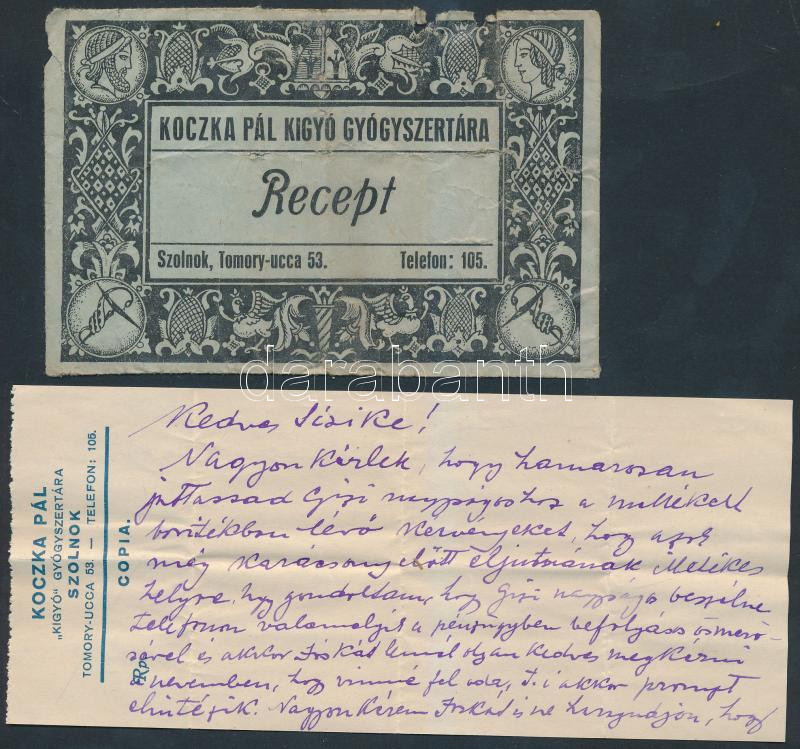 KOCZKA PÁL KIGYÓ GYÓGYSZERTÁRA
Recept
Szolnok, Tomory-ucca 53. Telefon: 105.
darabanth
KOCZKA PÁL
„KIGYÓ" GYÓGYSZERTÁRA
SZOLNOK
TOMORY-UCCA 53. — TELEFON: 105.
COPIA.
Rp.
Kedves Sizike!
Nagyon kérlek, hogy hamarosan
juttassad Gizi nagyságoshoz a mellékelt
borítékban lévő kérvényeket, hogy azok
még karácsony előtt eljutnának illetékes
helyre. Úgy gondoltam, hogy Gizi nagysága beszélne
telefonon valamelyik a pénzügyben befolyásos ösmerő-
sével és akkor Jóskát lennél olyan kedves megkérni
a nevemben, hogy vinné fel oda, s akkor prompt
elintézik. Nagyon kérem Jóskát is ne haragudjon, hogy